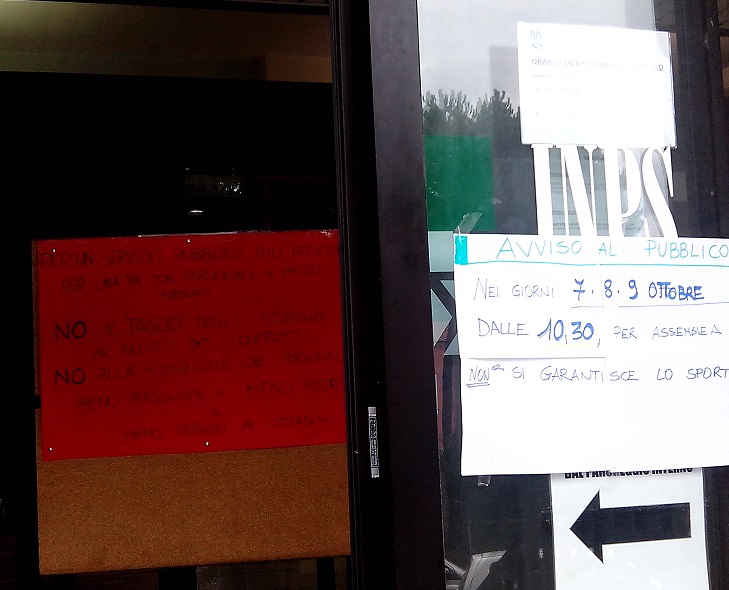 PER UN SERVIZIO PUBBLICO PIÙ
PER UNA PA CON PERSONALE E MEZZI
ADEGUATI
NO AL TAGLIO DEGLI STIPENDI
AL BLOCCO DEI CONTRATTI
NO ALLA RIDUZIONE DEL PERSONA
MENO PERSONALE MENO
=
MENO SERVIZI AI CITTADINI
INPS
AVVISO AL PUBBLICO
NEI GIORNI 7.8.9 OTTOBRE
DALLE 10,30, PER ASSEMBLEA
NON SI GARANTISCE LO SPORT
DAL PARCHEGGIO INTERNO